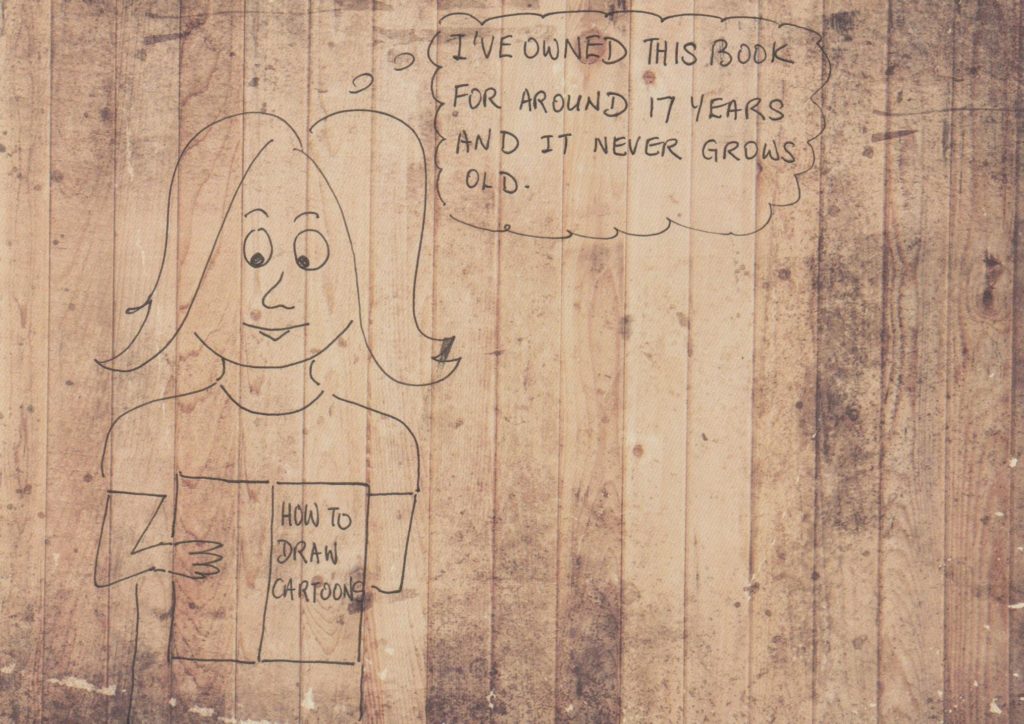 I'VE OWNED THIS BOOK
FOR AROUND 17 YEARS
AND IT NEVER GROWS
OLD.
HOW TO
DRAW
CARTOONS